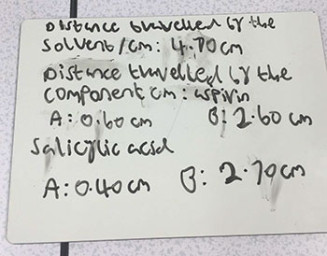 Distance travelled by the
solvent/cm: 4.70cm
Distance travelled by the
component cm: aspirin
A: 0.60 cm B: 2.60 cm
Salicylic acid
A: 0.40 cm B: 2.70 cm